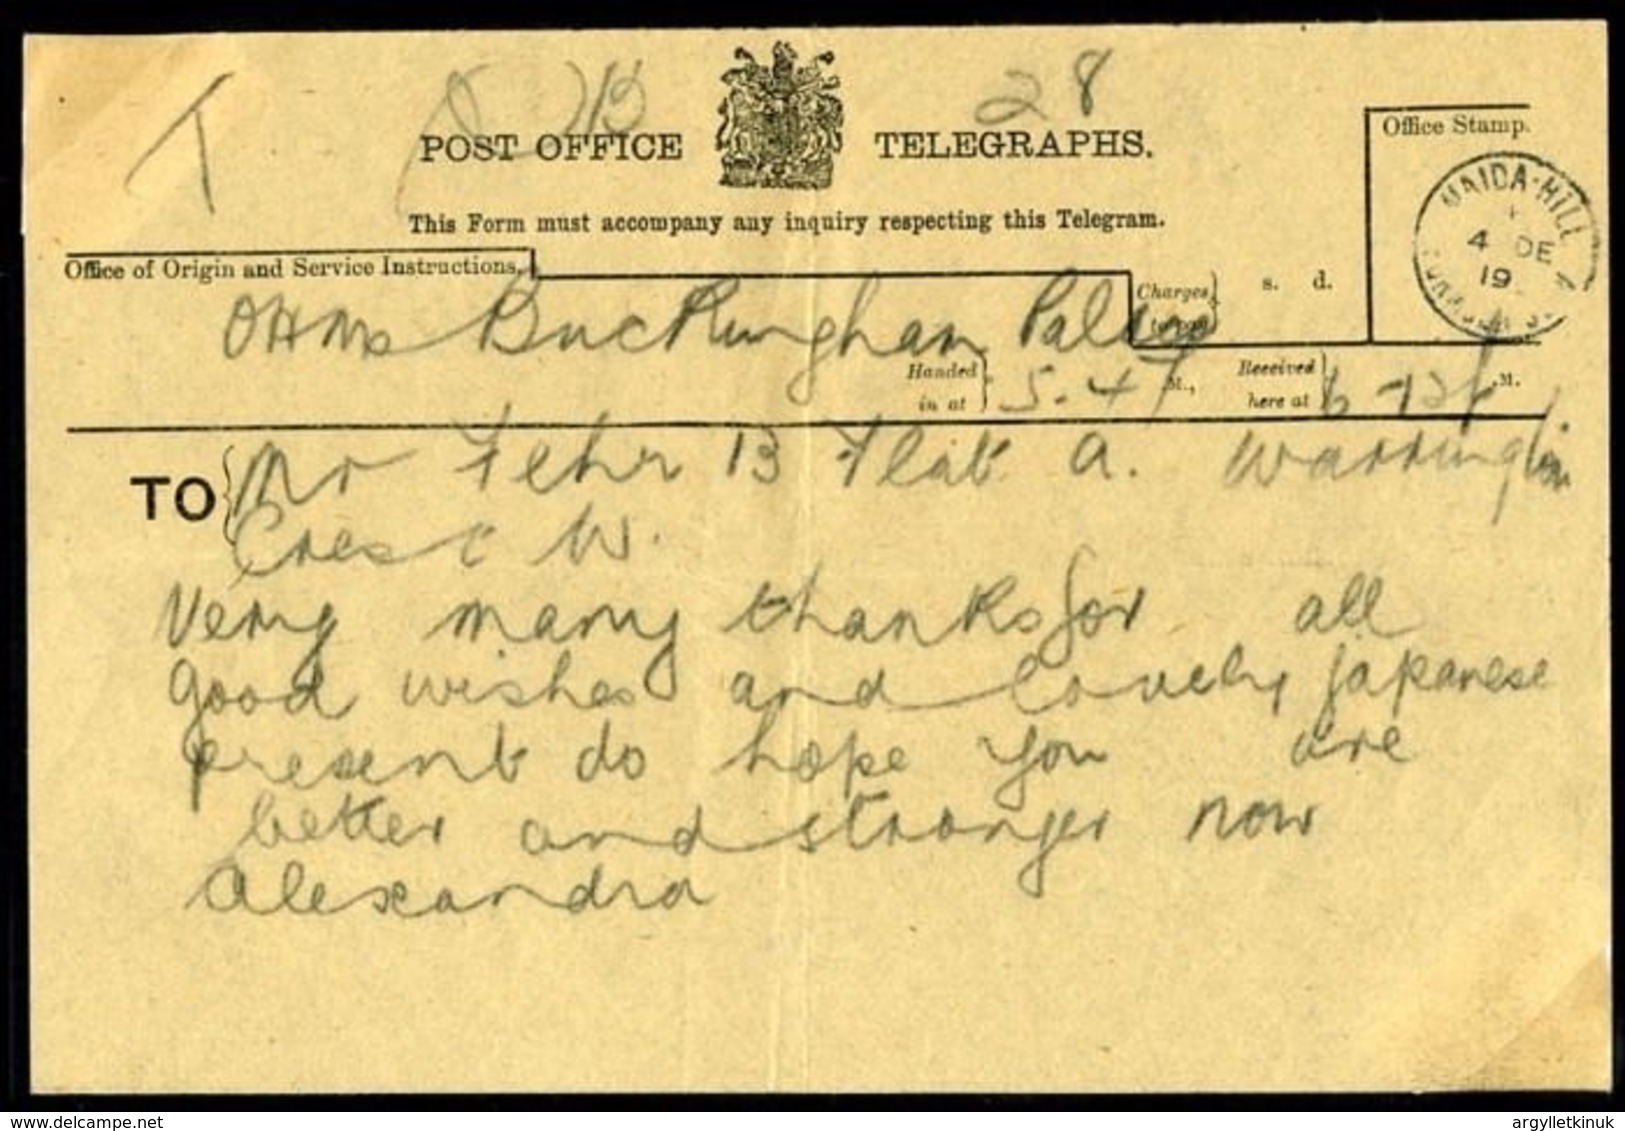 T
28
POST OFFICE TELEGRAPHS.
This Form must accompany any inquiry respecting this Telegram.
Office Stamp.
MAIDA-HILL
4 DE
19
Office of Origin and Service Instructions.
Charges to pay
s. d.
OHMS Buckingham Palace
Handed in at 5-47 M.,
Received here at 6-12 M.
TO
Mr Fehr 13 Flat A. Warrington
Cresc W.
Very many thanks for all
good wishes and lovely japanese
present do hope you are
better and stronger now
Alexandra
Delcampe.net
argylletkinuk